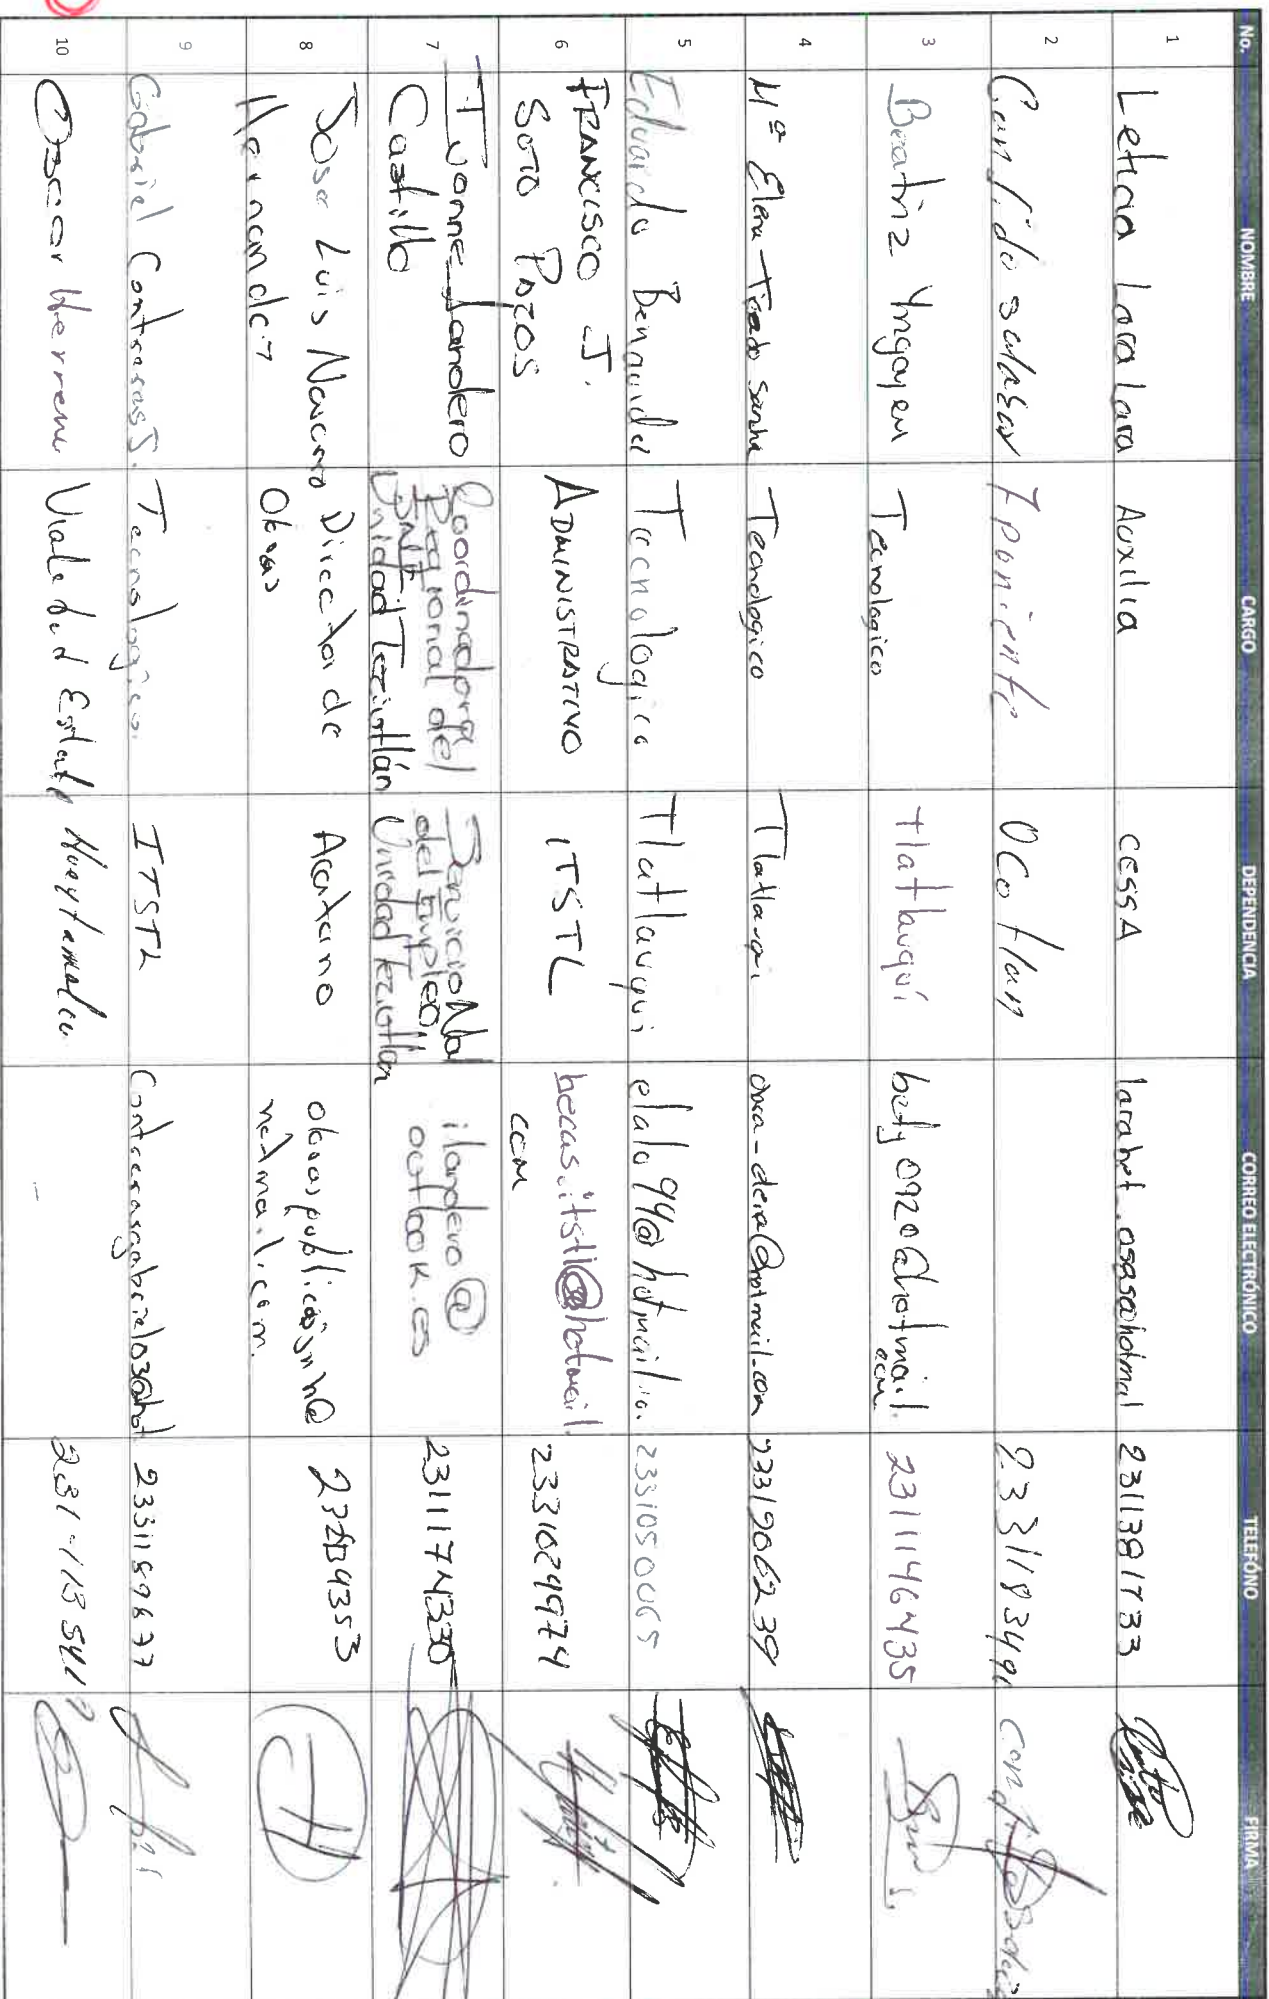 No. NOMBRE CARGO DEPENDENCIA CORREO ELECTRÓNICO TELEFÓNO FIRMA
1 Leticia Lara Lara Auxilia CESSA larahet_asasahotmal 2311381733
2 Candido salasar 7 poniente Ocotlan 233118349
3 Beatriz Yrigoyen Tecnologico tlatlauqui bety0920@hotmail.com 2311146435
4 Mª Elena Tirado Tecnologico Tlatlauqui 2331906239
5 Eduardo Benavidez Tecnologico Tlatlauqui elalo94@hotmail.co. 2331050065
6 FRANCISCO J. SOTO POZOS ADMINISTRATIVO ITSTL becas.itstl@hotmail.com 2331029974
7 Ivonne Landero Castillo Coordinadora Regional del SNE Unidad Teziutlán Servicio Nal del Empleo, Unidad Teziutlan ilandero@outlook.es 2311174330
8 Jose Luis Navarro Hernandez Director de Obras Acateno
9 Gabriel Contreras J. Tecnologico. ITSTL contrerasgabriel03@hot 2331159677
10 Oscar Herrera Hueytamalco